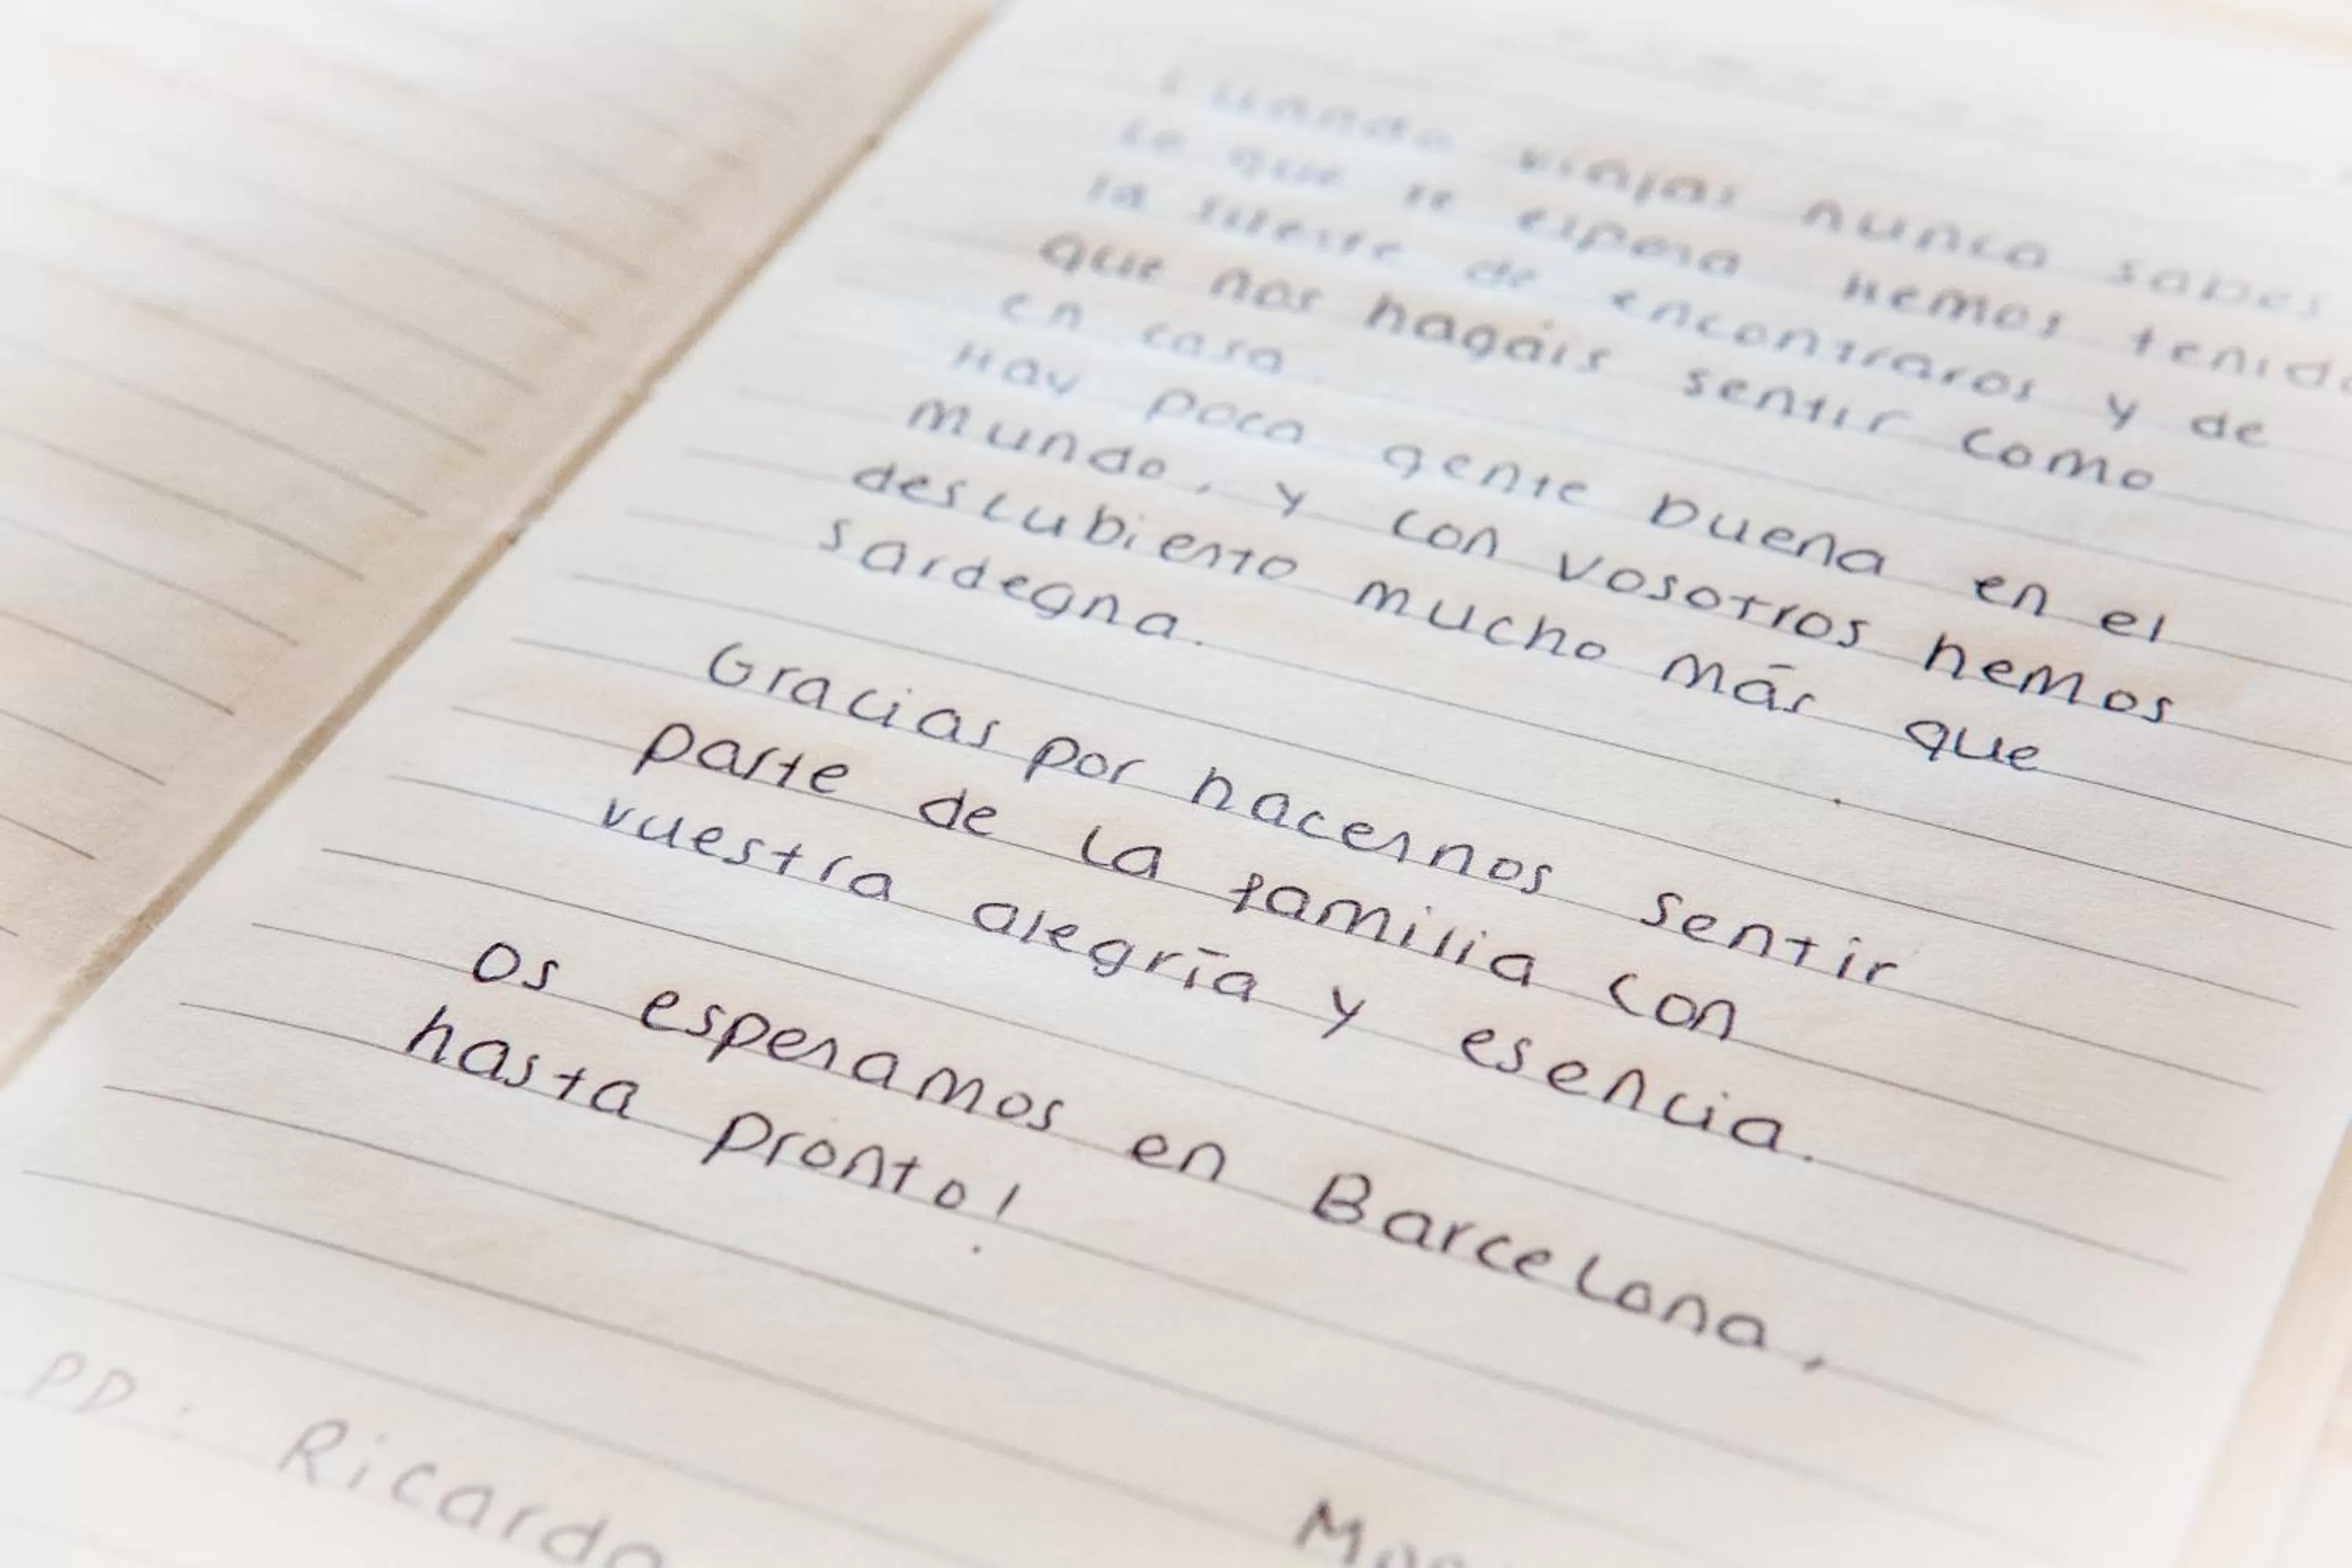 Cuando viajas nunca sabes
lo que te espera Hemos tenido
la suerte de encontraros y de
que nos hagáis sentir como
en casa
Hay poca gente buena en el
mundo, y con vosotros hemos
descubierto mucho más que
Sardegna.
Gracias por hacernos sentir
parte de la familia con
vuestra alegría y esencia.
Os esperamos en Barcelona,
hasta pronto!
PD: Ricardo